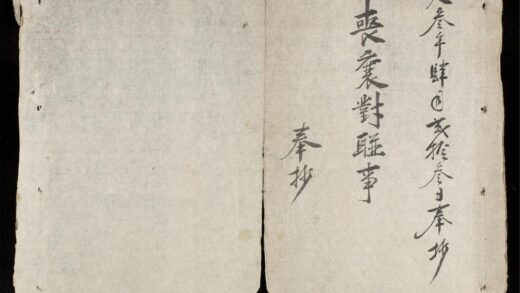 叁年肆月弍拾叁日奉抄
喪襄對聯事
奉抄